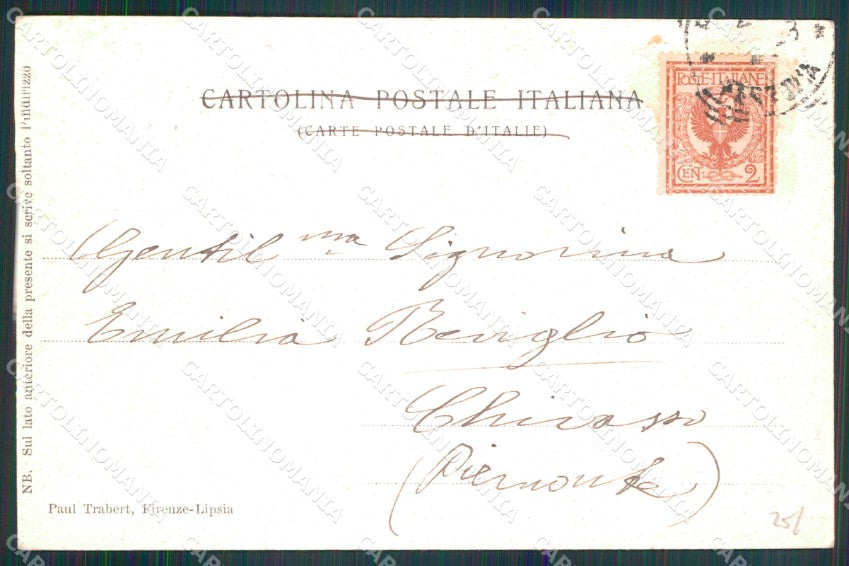 CARTOLINA POSTALE ITALIANA
(CARTE POSTALE D'ITALIE)
POSTE ITALIANE
CEN. 2
Gentil ma Signorina
Emilia Reviglio
Chivasso
(Piemonte)
Paul Trabert, Firenze-Lipsia
NB. Sul lato anteriore della presente si scrive soltanto l'indirizzo
25/
CARTOLINOMANIA